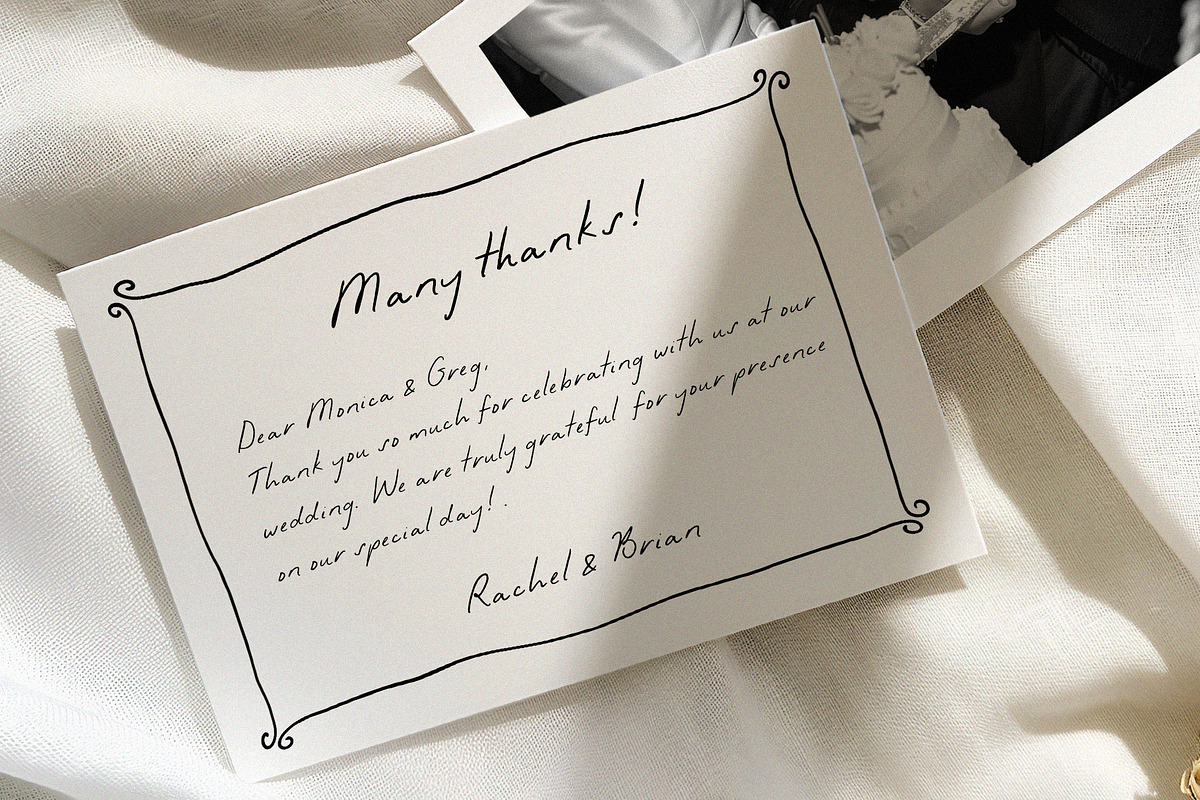 Many thanks!
Dear Monica & Greg,
Thank you so much for celebrating with us at our
wedding. We are truly grateful for your presence
on our special day! .
Rachel & Brian